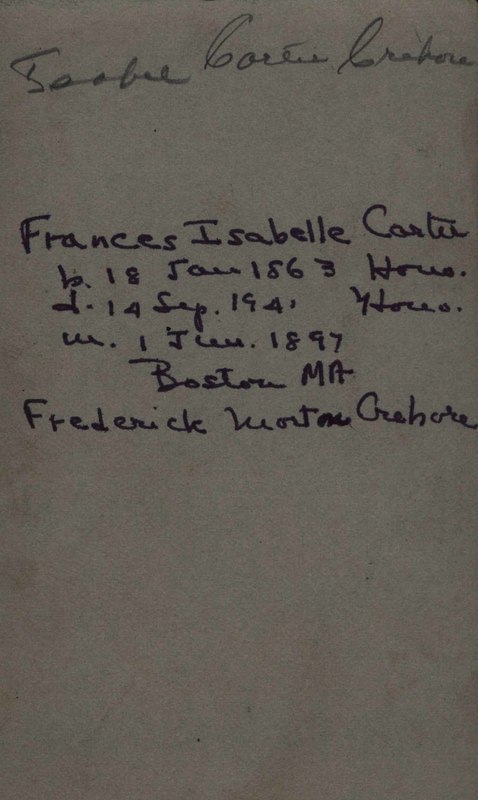 Isabel Carter Crehore
Frances Isabelle Carter
b. 18 Jan 1863 Hono.
d. 14 Sep. 1941 Hono.
m. 1 Jun. 1897
Boston MA
Frederick Morton Crehore